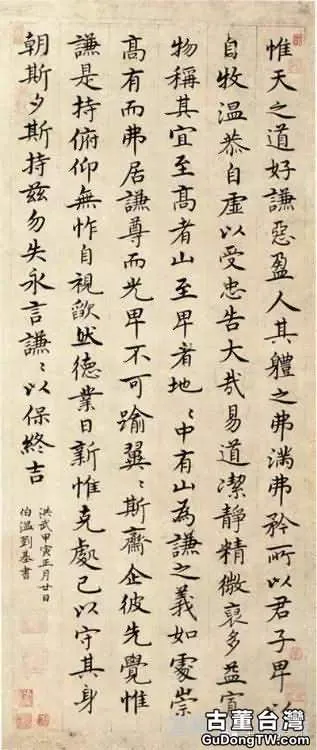 惟天之道好謙惡盈人其體之弗滿弗矜所以君子卑以
自牧溫恭自虛以受忠告大哉易道潔靜精微裒多益寡
物稱其宜至高者山至卑者地〻中有山為謙之義如處崇
高有而弗居謙尊而光卑不可踰翼〻斯齋企彼先覺惟
謙是持俯仰無怍自視欿然德業日新惟克處己以守其身
朝斯夕斯持茲勿失永言謙〻以保終吉
洪武甲寅正月廿日
伯溫劉基書
古董台灣
GuDongTW.com